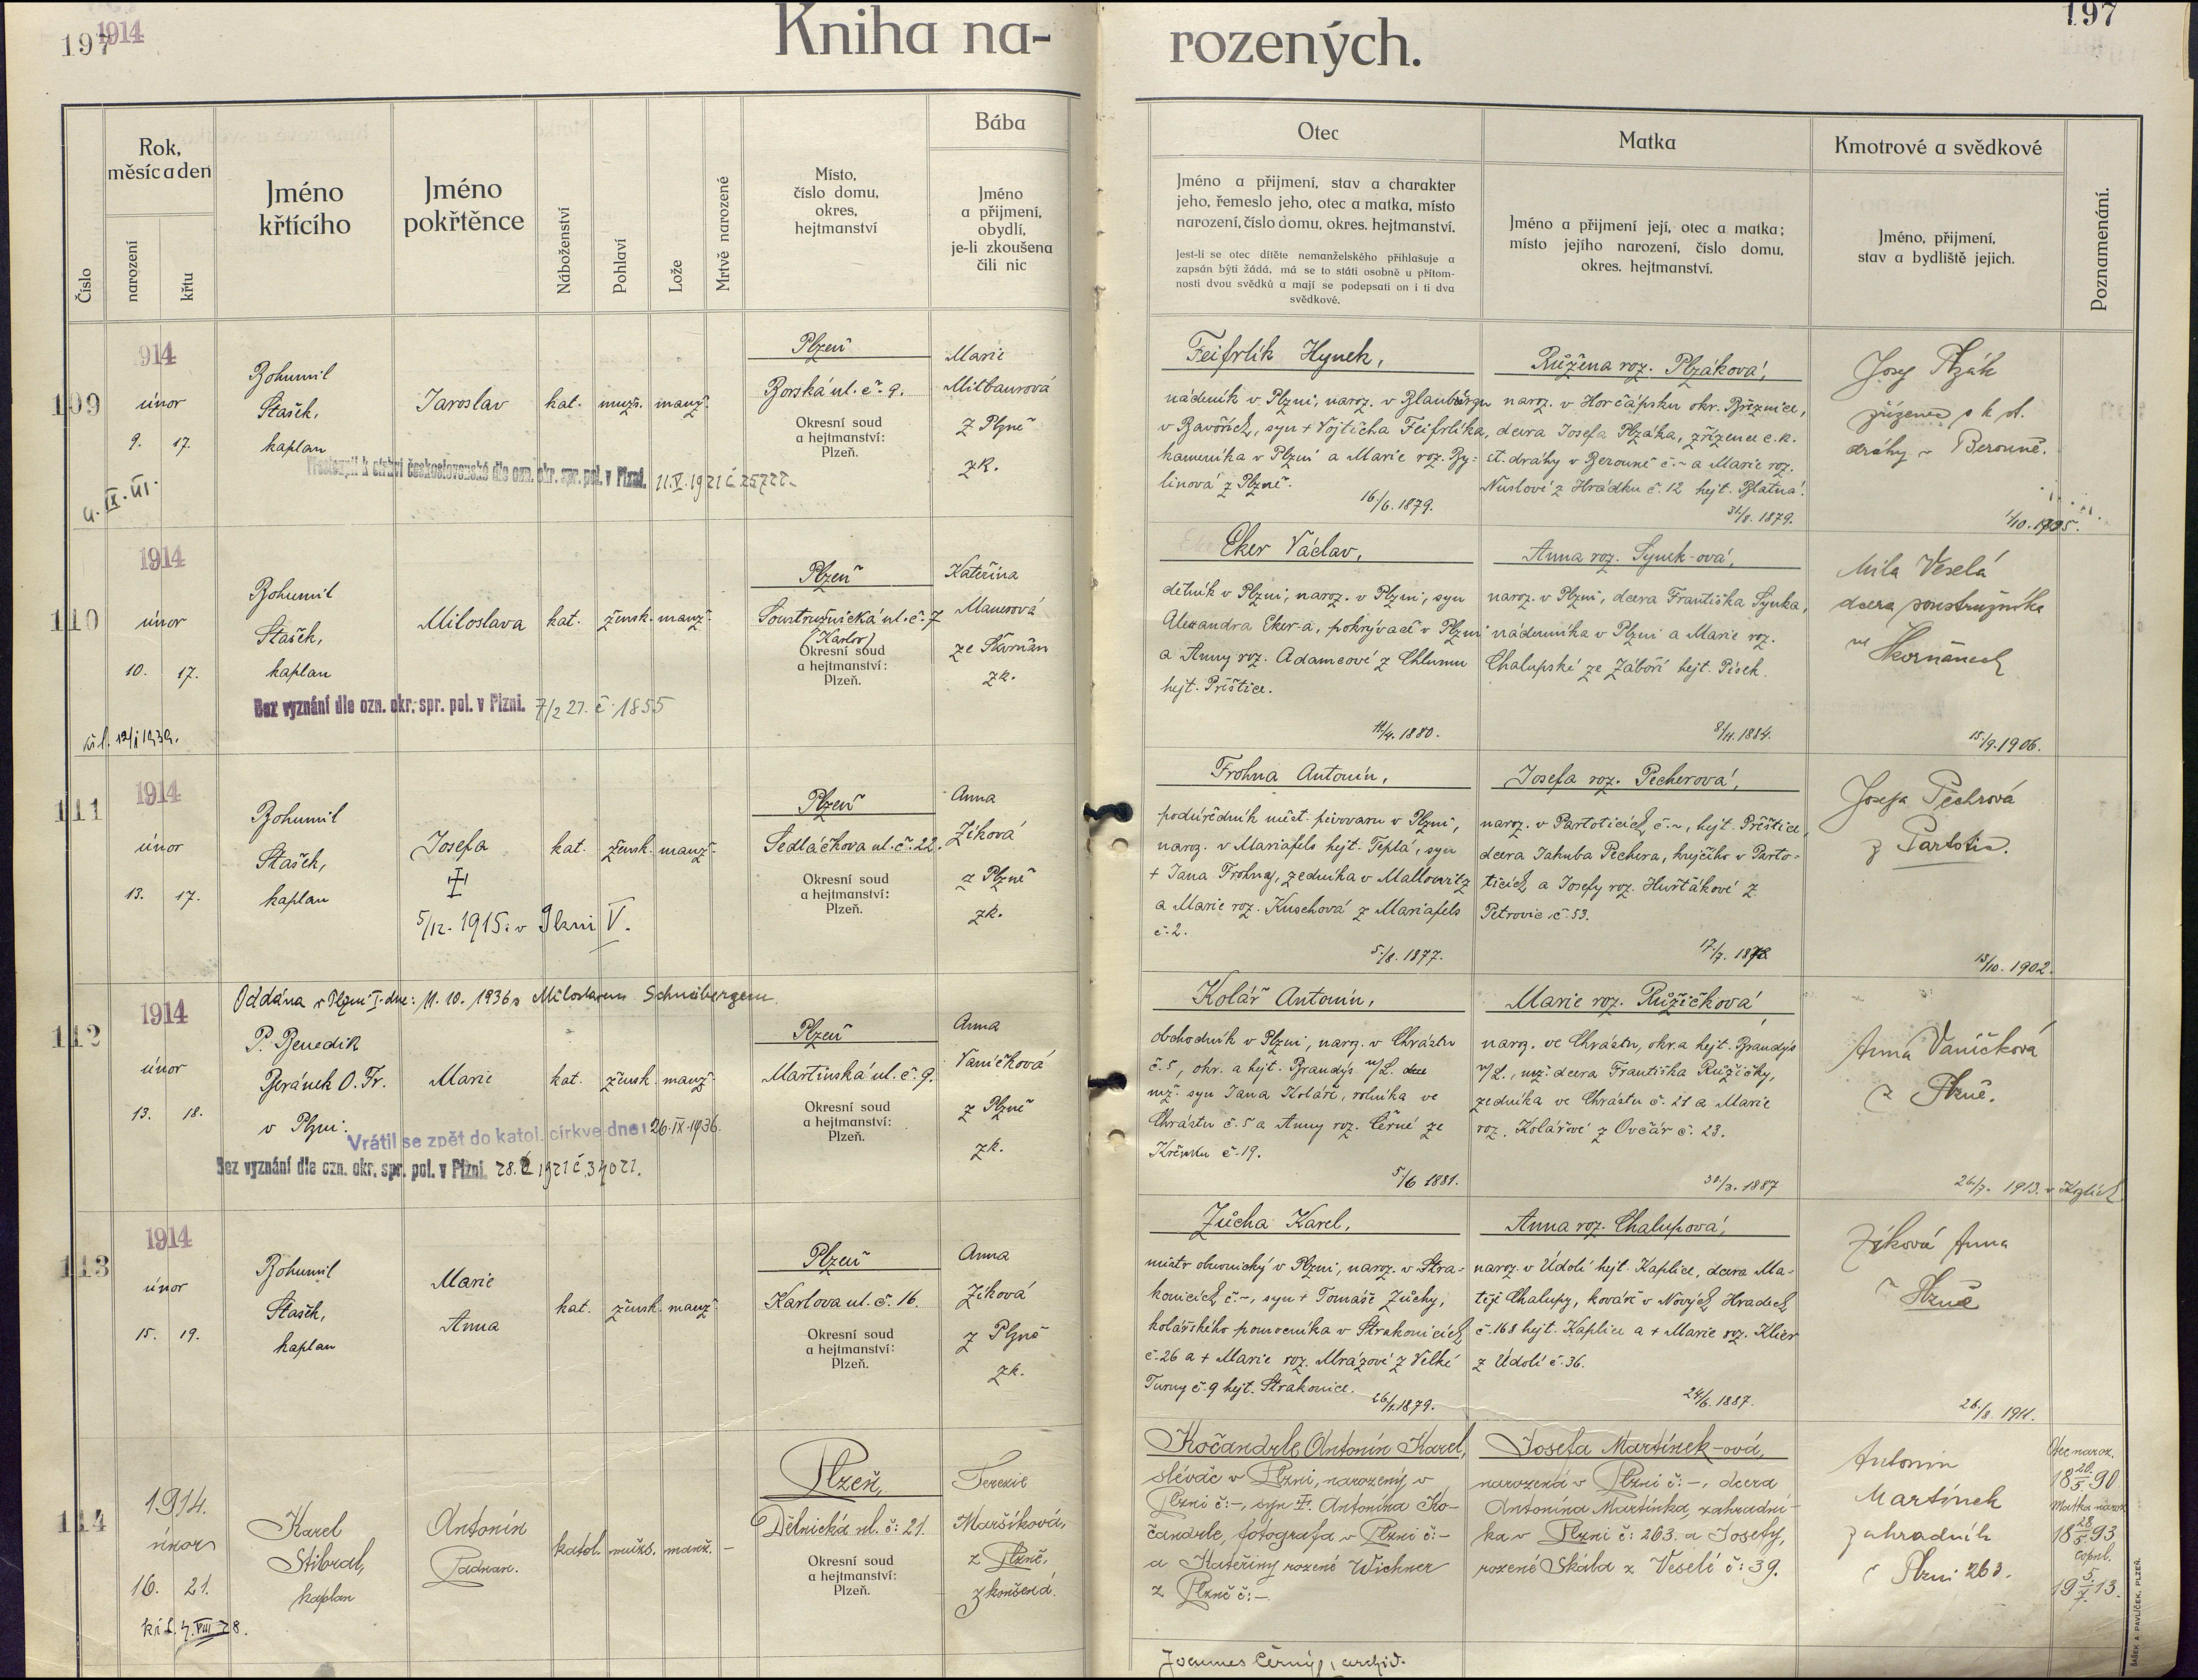 197
1914
Kniha na-
rozených.
197
Číslo
Rok,
měsíc a den
narození
křtu
Jméno
křtícího
Jméno
pokřtěnce
Náboženství
Pohlaví
Lože
Mrtvě narozené
Místo,
číslo domu,
okres,
hejtmanství
Bába
Jméno
a přijmení,
obydlí,
je-li zkoušena
čili nic
Otec
Jméno a přijmení, stav a charakter
jeho, řemeslo jeho, otec a matka, místo
narození, číslo domu, okres. hejtmanství.
Jest-li se otec dítěte nemanželského přihlašuje a
zapsán býti žádá, má se to státi osobně u přítom-
nosti dvou svědků a mají se podepsati on i ti dva
svědkové.
Matka
Jméno a přijmení její, otec a matka;
místo jejího narození, číslo domu,
okres. hejtmanství.
Kmotrové a svědkové
Jméno, přijmení,
stav a bydliště jejich.
Poznamenání.
109
914
únor
9. 17.
Bohumil
Stašek,
kaplan
Jaroslav
kat.
mužs.
manž.
Plzeň
Borská ul. č. 9.
Okresní soud
a hejtmanství:
Plzeň.
Marie
Mitbaurová
z Plzně
zk.
Přestoupil k církvi československé dle ozn. okr. spr. pol. v Plzni.
Feifrlík Hynek,
nádeník v Plzni, naroz. v Blaubergu
v Bavořích, syn + Vojtěcha Feifrlíka,
kameníka v Plzni a Marie roz. By-
linová z Plzně.
16/6. 1879.
Růžena roz. Plzáková,
naroz. v Horčápsku okr. Březnice,
dcera Josefa Plzáka, zřízence c. k.
st. dráhy v Berouně č. ~ a Marie roz.
Nuslové z Hrádku č. 12 hejt. Blatná.
31/8. 1879.
Josef Plzák
zřízenec c k st.
dráhy v Berouně.
1/10. 1905.
110
1914
únor
10. 17.
Bohumil
Stašek,
kaplan
Miloslava
kat.
žensk.
manž.
Plzeň
Soustružnická ul. č. 7
(Karlov)
Okresní soud
a hejtmanství:
Plzeň.
Kateřina
Mauerová
ze Škvrňan
zk.
Bez vyznání dle ozn. okr. spr. pol. v Plzni. 7/2 27. č. 1855
Eker Václav,
dělník v Plzni, naroz. v Plzni, syn
Alexandra Eker-a, pokrývače v Plzni
a Anny roz. Adamcové z Chlumu
hejt. Přeštice.
11/4. 1880.
Anna roz. Synek-ová,
naroz. v Plzni, dcera Františka Synka,
nádeníka v Plzni a Marie roz.
Chalupské ze Záboří hejt. Písek.
8/11. 1884.
Mila Veselá
dcera soustružníka
ve Škvrňanech
15/9. 1906.
111
1914
únor
13. 17.
Bohumil
Stašek,
kaplan
Josefa
5/12. 1915. v Plzni V.
kat.
žensk.
manž.
Plzeň
Sedláčkova ul. č. 22.
Okresní soud
a hejtmanství:
Plzeň.
Anna
Zíková
z Plzně
zk.
Frohna Antonín,
podúředník měst. pivovaru v Plzni,
naroz. v Mariafels hejt. Teplá, syn
+ Jana Frohny, zedníka v Mallowitz
a Marie roz. Kuschová z Mariafels
č. 2.
5/8. 1877.
Josefa roz. Pecherová,
naroz. v Partoticích č. ~, hejt. Přeštice,
dcera Jakuba Pechera, krejčího v Parto-
ticích a Josefy roz. Huřtákové z
Petrovic č. 53.
Josefa Pechrová
z Partotic.
13/10. 1902.
112
1914
únor
13. 18.
Oddána v Plzni I. dne: 11. 10. 1936 s Miloslavem Schneibergem.
P. Benedik
Beránek O. Fr.
v Plzni.
Marie
kat.
žensk.
manž.
Plzeň
Martinská ul. č. 9.
Okresní soud
a hejtmanství:
Plzeň.
Anna
Vaníčková
z Plzně
zk.
Vrátil se zpět do katol. církve dne: 26. IX. 1936.
Bez vyznání dle ozn. okr. spr. pol. v Plzni.
Kolář Antonín,
obchodník v Plzni, naroz. v Chrástu
č. 5, okr. a hejt. Brandýs n/L.
mž. syn Jana Koláře, rolníka ve
Chrástu č. 5 a Anny roz. Černé ze
Křenku č. 19.
5/6 1881.
Marie roz. Růžičková,
naroz. ve Chrástu, okr. a hejt. Brandýs
n/L., mž. dcera Františka Růžičky,
zedníka ve Chrástu č. 21 a Marie
roz. Kolářové z Ovčár č. 23.
30/3. 1887
Anna Vaníčková
z Plzně.
26/7. 1913.
113
1914
únor
15. 19.
Bohumil
Stašek,
kaplan
Marie
Anna
kat.
žensk.
manž.
Plzeň
Karlova ul. č. 16.
Okresní soud
a hejtmanství:
Plzeň.
Anna
Zíková
z Plzně
zk.
Zücha Karel,
mistr obuvnický v Plzni, naroz. v Stra-
konicích č. -, syn + Tomáše Züchy,
kolářského pomocníka v Strakonicích
č. 26 a + Marie roz. Mrázové z Velké
Turny č. 9 hejt. Strakonice.
26/1. 1879.
Anna roz. Chalupová,
naroz. v Údolí hejt. Kaplice, dcera Ma-
těje Chalupy, kováře v Nových Hradech
č. 168 hejt. Kaplice a + Marie roz. Klier
z Údolí č. 36.
24/6. 1887.
Zíková Anna
v Plzně
28/8. 1911.
114
1914.
únor
16. 21.
Karel
Stibral,
kaplan
Antonín
Paduan.
katol.
mužs.
manž.
-
Plzeň,
Dělnická ul. č: 21.
Okresní soud
a hejtmanství:
Plzeň.
Terezie
Maršíková,
z Plzně,
zkoušená.
Kočandrle Antonín Karel,
slévač v Plzni, narozený v
Plzni č: -, syn +. Antonína Ko-
čandrle, fotografa v Plzni č: -
a Kateřiny rozené Wichner
z Plzně č: -.
Josefa Martínek-ová,
narozená v Plzni č: -, dcera
Antonína Martínka, zahradní-
ka v Plzni č: 263. a Josefy,
rozené Skála z Veselé č: 39.
Antonín
Martínek
zahradník
v Plzni 263.
Otec naroz.
18 20./5. 90
Matka naroz.
18 28/5. 93
copul.
19 5./7. 13.
Joannes Černý, archid.
ŠAŠEK A PAVLÍČEK, PLZEŇ.